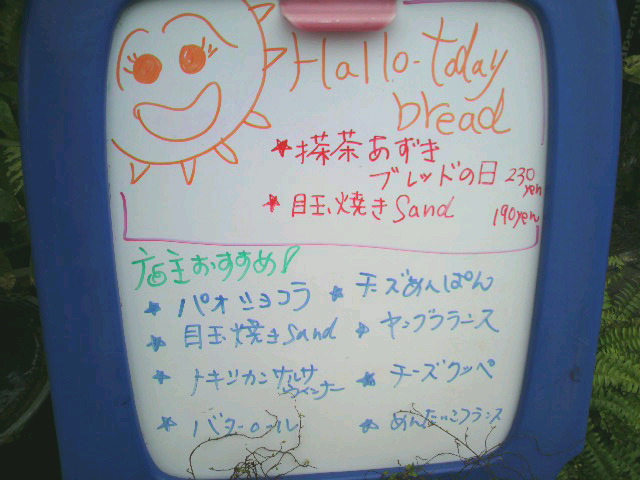 Hallo-today
bread
★抹茶あずき
ブレッドの日 230yen
★目玉焼きSand 190yen
店主おすすめ!
★パオショコラ
★チーズめんぱぽん
★目玉焼きSand
★ヤングフランス
★メキシカンサルサウインナー
★チーズクッペ
★バターロール
★めんたいこフランス